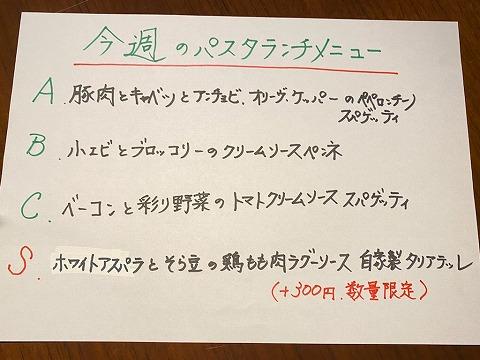 今週のパスタランチメニュー
A. 豚肉とキャベツとアンチョビ、オリーヴ、ケッパーのペペロンチーノ
スパゲッティ
B. 小エビとブロッコリーのクリームソースペンネ
C. ベーコンと彩り野菜のトマトクリームソース スパゲッティ
S. ホワイトアスパラとそら豆の鶏もも肉ラグーソース 自家製タリアテッレ
(+300円、数量限定)